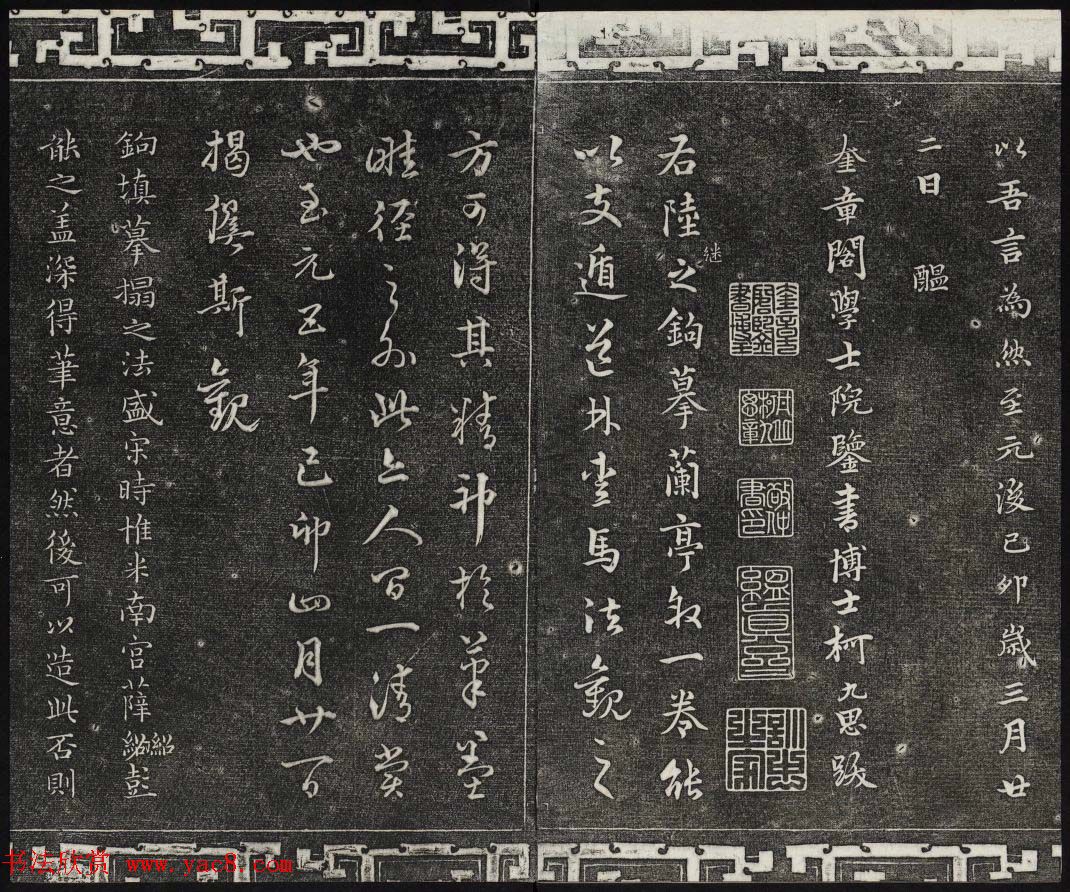 以吾言為然至元後己卯歲三月廿
二日 醖
奎章閣學士院鑒書博士柯九思跋
奎章閣鑒書博士
右陸繼之鉤摹蘭亭敘一卷能
以支遁道林愛馬法觀之
方可得其精神於筆墨
畦徑之外此亦人間一清賞
也至元五年己卯四月廿一日
揭傒斯觀
鉤填摹搨之法盛宋時惟米南宮薛紹彭
能之蓋深得筆意者然後可以造此否則
书法欣赏 www.yac8.com